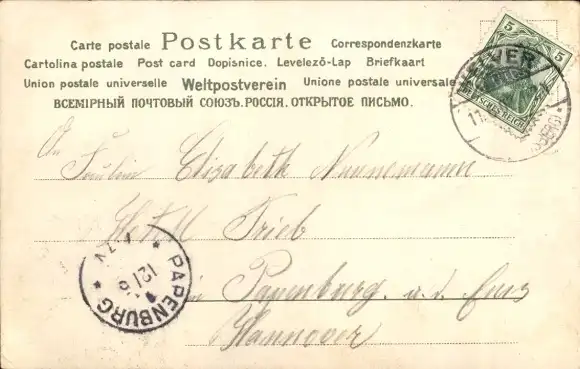 Carte postale Postkarte Correspondenzkarte
Cartolina postale Post card Dopisnice. Levelező-Lap Briefkaart
Union postale universelle Weltpostverein Unione postale universale
ВСЕМІРНЫЙ ПОЧТОВЫЙ СОЮЗЪ. РОССІЯ. ОТКРЫТОЕ ПИСЬМО.
5 5
DEUTSCHES REICH
An
Fräulein Elisabeth Nünnemann
Trieb
in Papenburg. a. d. Ems
Hannover
PAPENBURG
12/6